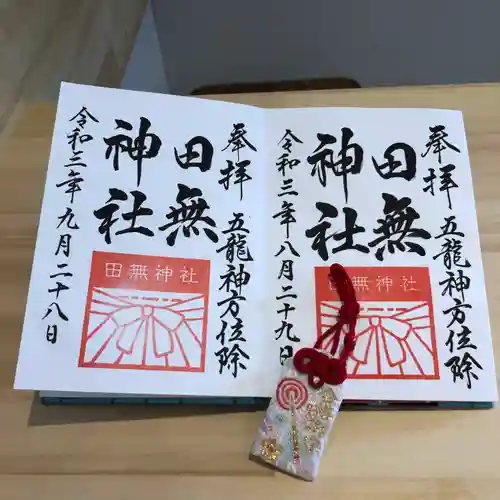 奉拝 五龍神方位除
田無
神社
田無神社
令和三年八月二十九日
奉拝 五龍神方位除
田無
神社
田無神社
令和三年九月二十八日